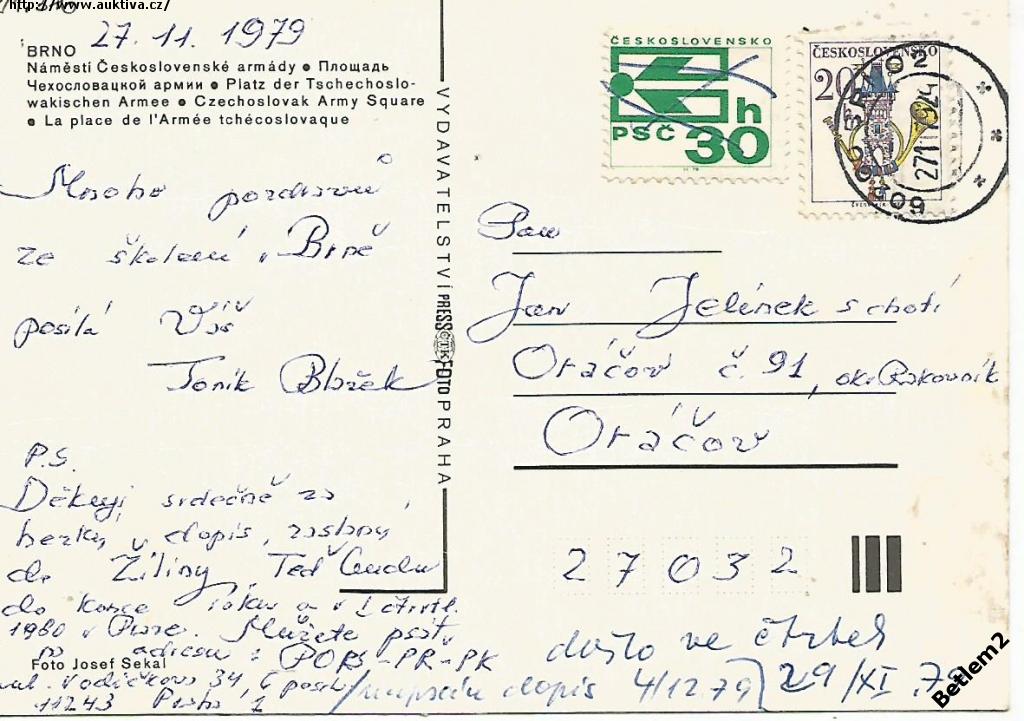 http://www.auktiva.cz/
27.11.1979
BRNO
Náměstí Československé armády • Площадь
Чехословацкой армии • Platz der Tschechoslo-
wakischen Armee • Czechoslovak Army Square
• La place de l'Armée tchécoslovaque
Mnoho pozdravů
ze školení v Brně
posílá Váš
Toník Blažek
P.S.
Děkuji srdečně za
hezký dopis, zaslaný
do Žiliny. Teď budu
do konce roku a v I čtvrtl.
1980 v Praze. Můžete psát
adresu: PORS-PR-PK
Foto Josef Sekal
ul. Vodičkova 34,
11243 Praha 1
VYDAVATELSTVÍ PRESSFOTO PRAHA
ČTK
ČESKOSLOVENSKO
h
PSČ 30
ČESKOSLOVENSKO
20
h
BRNO 2
Pan
Jan Jelínek s chotí
Oráčov č. 91, okr. Rakovník
Oráčov
27032
došlo ve čtvrtek
29/XI.79
napsán dopis 4/12.79
Betlem2